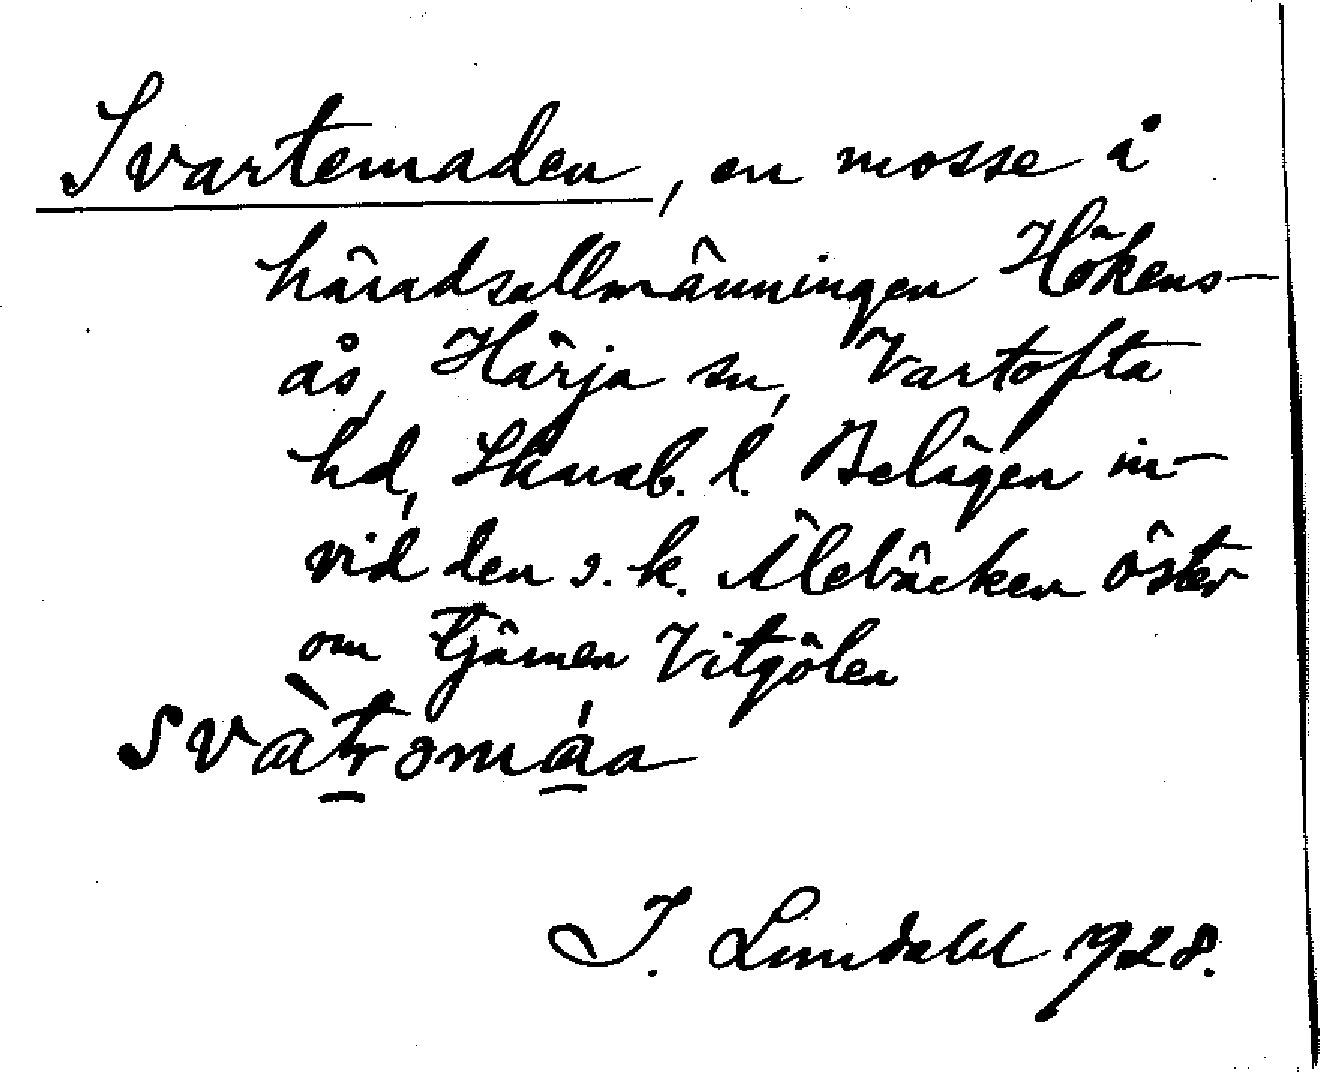 Svartemaden, en mosse å
häradsallmänningen Hökens-
ås, Härja sn, Vartofta
hd, Skarab. l. Belägen in-
vid den s. k. Älebäcken öster
om tjärnen Vitgölen
svàtromáa
J. Lundahl 1928.